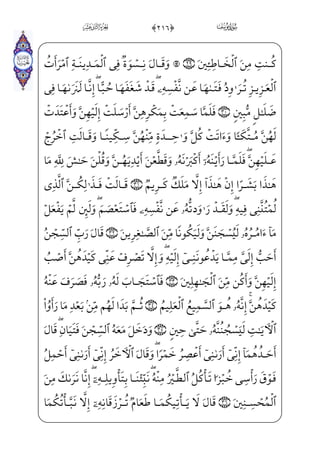 ﴿٢١٦﴾
كُنتِ مِنَ ٱلْخَاطِـِٔينَ ۝٢٩ ۞ وَقَالَ نِسْوَةٌ فِى ٱلْمَدِينَةِ ٱمْرَأَتُ
ٱلْعَزِيزِ تُرَٰوِدُ فَتَىٰهَا عَن نَّفْسِهِۦ ۖ قَدْ شَغَفَهَا حُبًّا ۖ إِنَّا لَنَرَىٰهَا فِى
ضَلَٰلٍ مُّبِينٍ ۝٣٠ فَلَمَّا سَمِعَتْ بِمَكْرِهِنَّ أَرْسَلَتْ إِلَيْهِنَّ وَأَعْتَدَتْ
لَهُنَّ مُتَّكَـًٔا وَءَاتَتْ كُلَّ وَٰحِدَةٍ مِّنْهُنَّ سِكِّينًا وَقَالَتِ ٱخْرُجْ
عَلَيْهِنَّ ۖ فَلَمَّا رَأَيْنَهُۥٓ أَكْبَرْنَهُۥ وَقَطَّعْنَ أَيْدِيَهُنَّ وَقُلْنَ حَٰشَ لِلَّهِ مَا
هَٰذَا بَشَرًا إِنْ هَٰذَآ إِلَّا مَلَكٌ كَرِيمٌ ۝٣١ قَالَتْ فَذَٰلِكُنَّ ٱلَّذِى
لُمْتُنَّنِى فِيهِ ۖ وَلَقَدْ رَٰوَدتُّهُۥ عَن نَّفْسِهِۦ فَٱسْتَعْصَمَ ۖ وَلَئِن لَّمْ يَفْعَلْ
مَآ ءَامُرُهُۥ لَيُسْجَنَنَّ وَلَيَكُونًا مِّنَ ٱلصَّٰغِرِينَ ۝٣٢ قَالَ رَبِّ ٱلسِّجْنُ
أَحَبُّ إِلَىَّ مِمَّا يَدْعُونَنِىٓ إِلَيْهِ ۖ وَإِلَّا تَصْرِفْ عَنِّى كَيْدَهُنَّ أَصْبُ
إِلَيْهِنَّ وَأَكُن مِّنَ ٱلْجَٰهِلِينَ ۝٣٣ فَٱسْتَجَابَ لَهُۥ رَبُّهُۥ فَصَرَفَ عَنْهُ
كَيْدَهُنَّ ۚ إِنَّهُۥ هُوَ ٱلسَّمِيعُ ٱلْعَلِيمُ ۝٣٤ ثُمَّ بَدَا لَهُم مِّنۢ بَعْدِ مَا رَأَوُا۟
ٱلْـَٔايَٰتِ لَيَسْجُنُنَّهُۥ حَتَّىٰ حِينٍ ۝٣٥ وَدَخَلَ مَعَهُ ٱلسِّجْنَ فَتَيَانِ ۖ قَالَ
أَحَدُهُمَآ إِنِّىٓ أَرَىٰنِىٓ أَعْصِرُ خَمْرًا ۖ وَقَالَ ٱلْـَٔاخَرُ إِنِّىٓ أَرَىٰنِىٓ أَحْمِلُ
فَوْقَ رَأْسِى خُبْزًا تَأْكُلُ ٱلطَّيْرُ مِنْهُ ۖ نَبِّئْنَا بِتَأْوِيلِهِۦٓ ۖ إِنَّا نَرَىٰكَ مِنَ
ٱلْمُحْسِنِينَ ۝٣٦ قَالَ لَا يَأْتِيكُمَا طَعَامٌ تُرْزَقَانِهِۦٓ إِلَّا نَبَّأْتُكُمَا